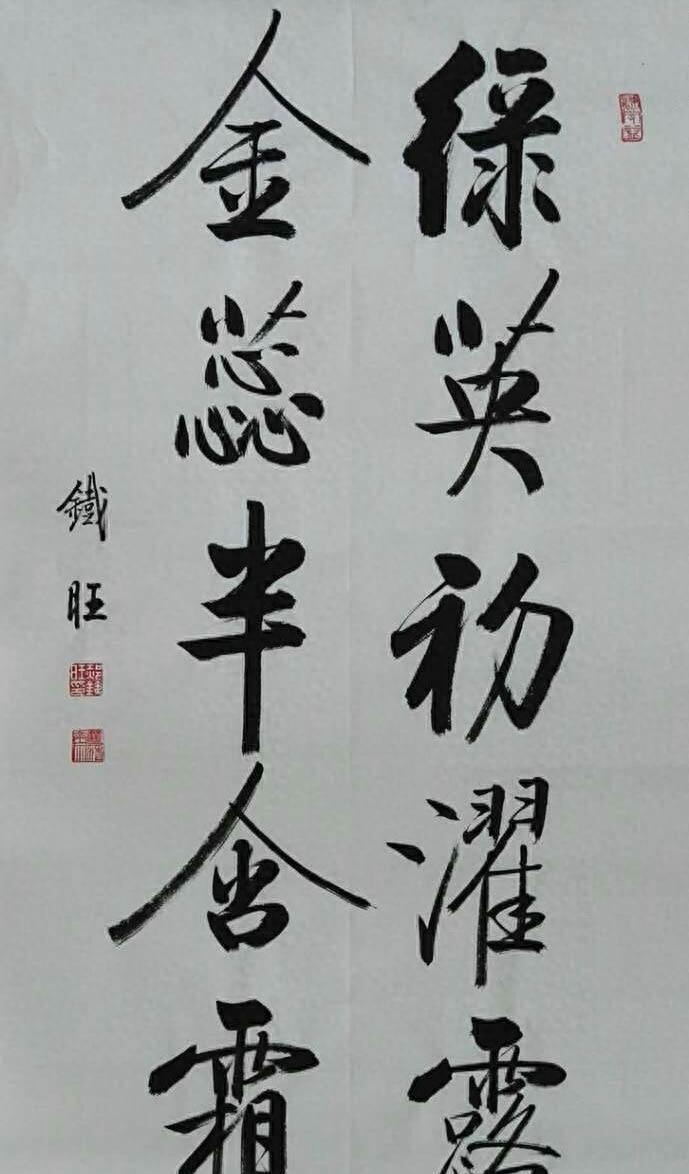 绿英初濯露
金蕊半含霜
鐵旺